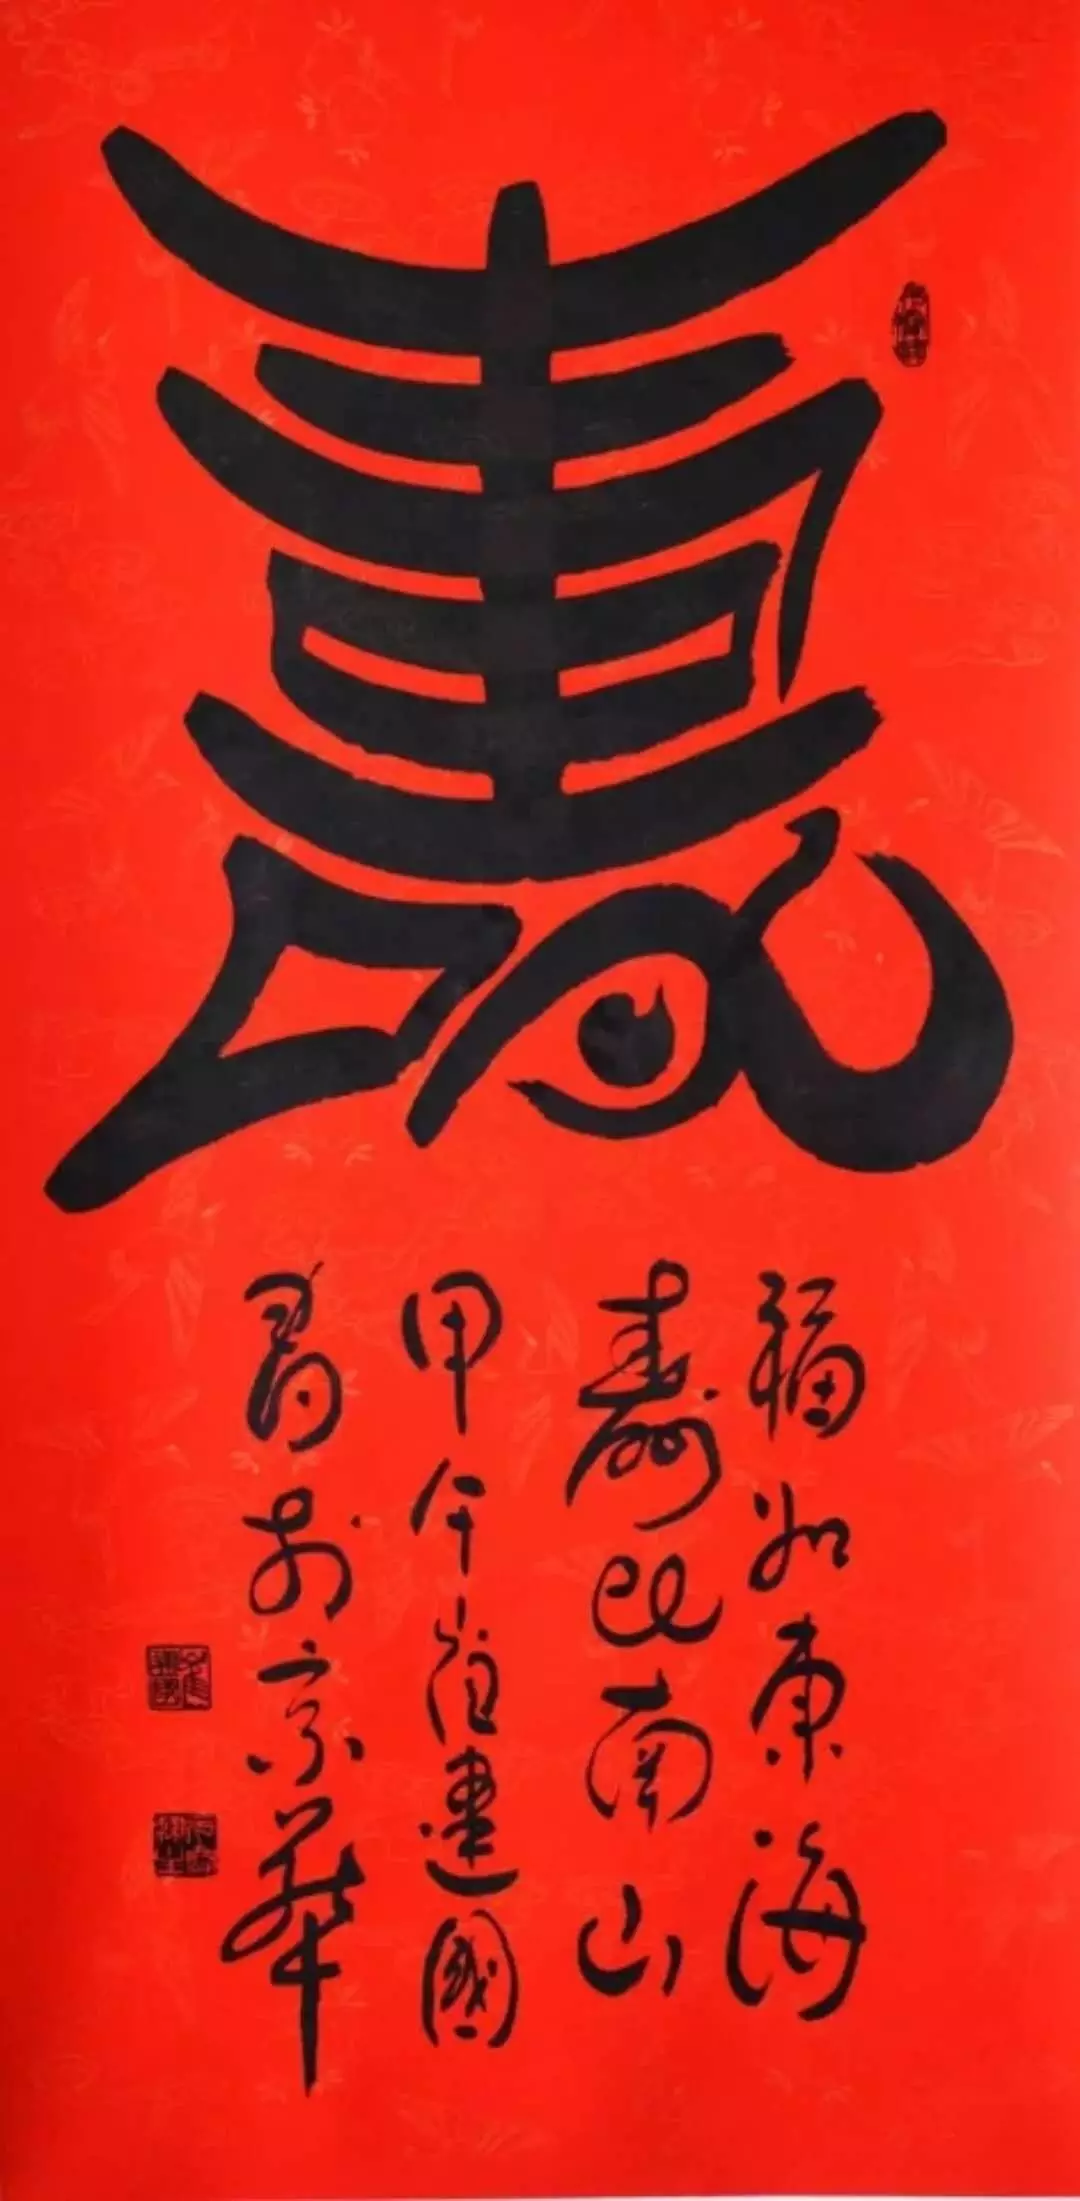 壽
福如東海
壽比南山
甲午崔建國
書於京華